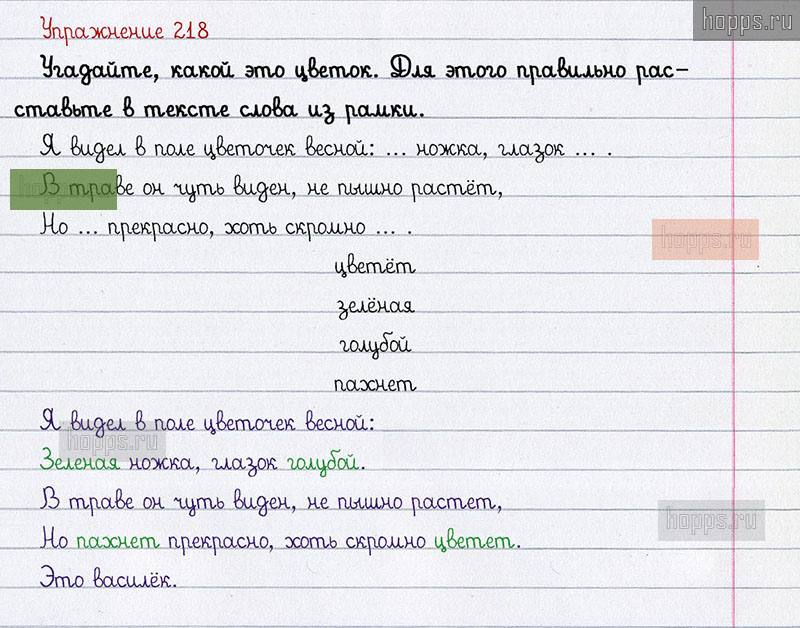 hopps.ru
Упражнение 218
Угадайте, какой это цветок. Для этого правильно рас-
ставьте в тексте слова из рамки.
Я видел в поле цветочек весной: ... ножка, глазок ... .
hopps.ru
В траве он чуть виден, не пышно растёт,
Но ... прекрасно, хоть скромно ... .
hopps.ru
цветёт
зелёная
голубой
пахнет
Я видел в поле цветочек весной:
hopps.ru
Зеленая ножка, глазок голубой.
В траве он чуть виден, не пышно растет,
hopps.ru
Но пахнет прекрасно, хоть скромно цветет.
Это василёк.